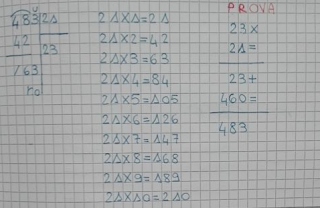 483 21
42
23
/63
r.0
21x1=21
21x2=42
21x3=63
21x4=84
21x5=105
21x6=126
21x7=147
21x8=168
21x9=189
21x10=210
PROVA
23x
21=
23+
460=
483